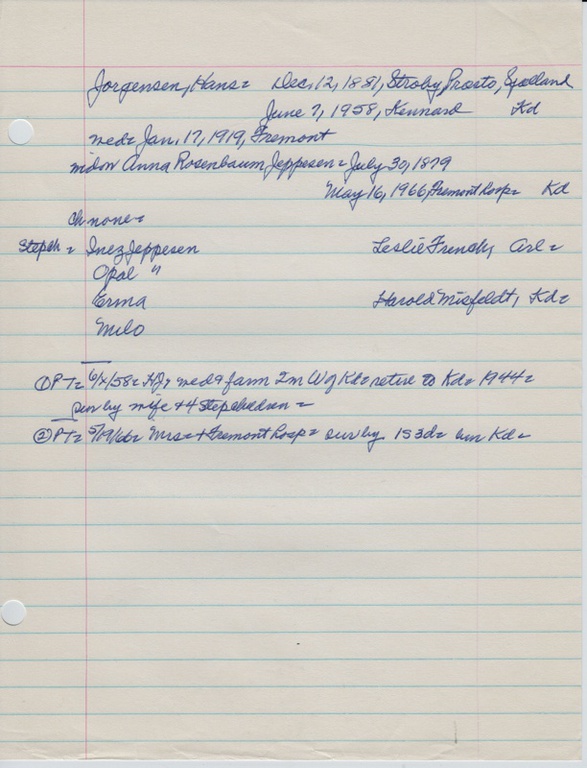 Jorgensen, Hans = Dec. 12, 1881, Stroby, Prasto, Sjaelland
June 7, 1958, Kennard Kd
wed = Jan. 17, 1919, Fremont
widow Anna Rosenbaum Jeppesen = July 30, 1879
May 16, 1966, Fremont hosp = Kd
ch none =
Stepch = Inez Jeppesen Leslie French, Arl =
Opal "
Erma Harold Misfeldt, Kd =
Milo
① PT = HJ, wed & farm 2m W of Kd = retire to Kd = 1944 =
surv by wife + 4 stepchildren =
② PT = 5/19/66 = Mrs = + Fremont hosp = surv by 1s 3d = bur Kd =